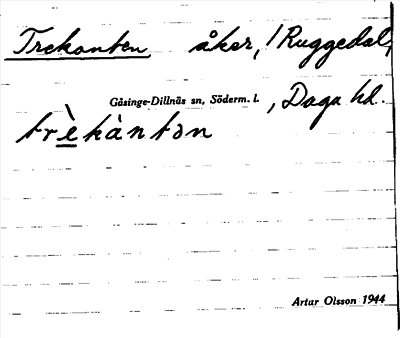 Trekanten åker, / Ruggedal,
Gåsinge-Dillnäs sn, Söderm. l. , Daga hd.
trè̱kànton
Artur Olsson 1944